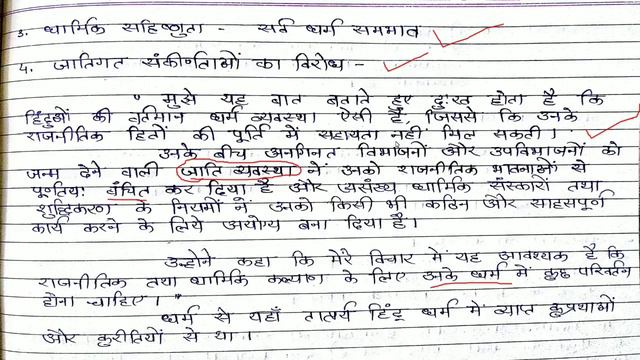 3. धार्मिक सहिष्णुता - सर्व धर्म समभाव
4. जातिगत संकीर्णताओं का विरोध -
" मुझे यह बात बताते हुए दुःख होता है कि
हिंदुओं की वर्तमान धर्म व्यवस्था ऐसी है, जिससे कि उनके
राजनीतिक हितों की पूर्ति में सहायता नहीं मिल सकती।
उनके बीच अनगिनत विभाजनों और उपविभाजनों को
जन्म देने वाली जाति व्यवस्था ने उनको राजनीतिक भावनाओं से
पूर्णतयः वंचित कर दिया है और असंख्य धार्मिक संस्कारों तथा
शुद्धिकरण के नियमों ने उनको किसी भी कठिन और साहसपूर्ण
कार्य करने के लिये अयोग्य बना दिया है।
उन्होने कहा कि मेरे विचार में यह आवश्यक है कि
राजनीतिक तथा धार्मिक कल्याण के लिए उनके धर्म में कुछ परिवर्तन
होना चाहिए। "
धर्म से यहाँ तात्पर्य हिंदू धर्म में व्याप्त कुप्रथाओं
और कुरीतियों से था।